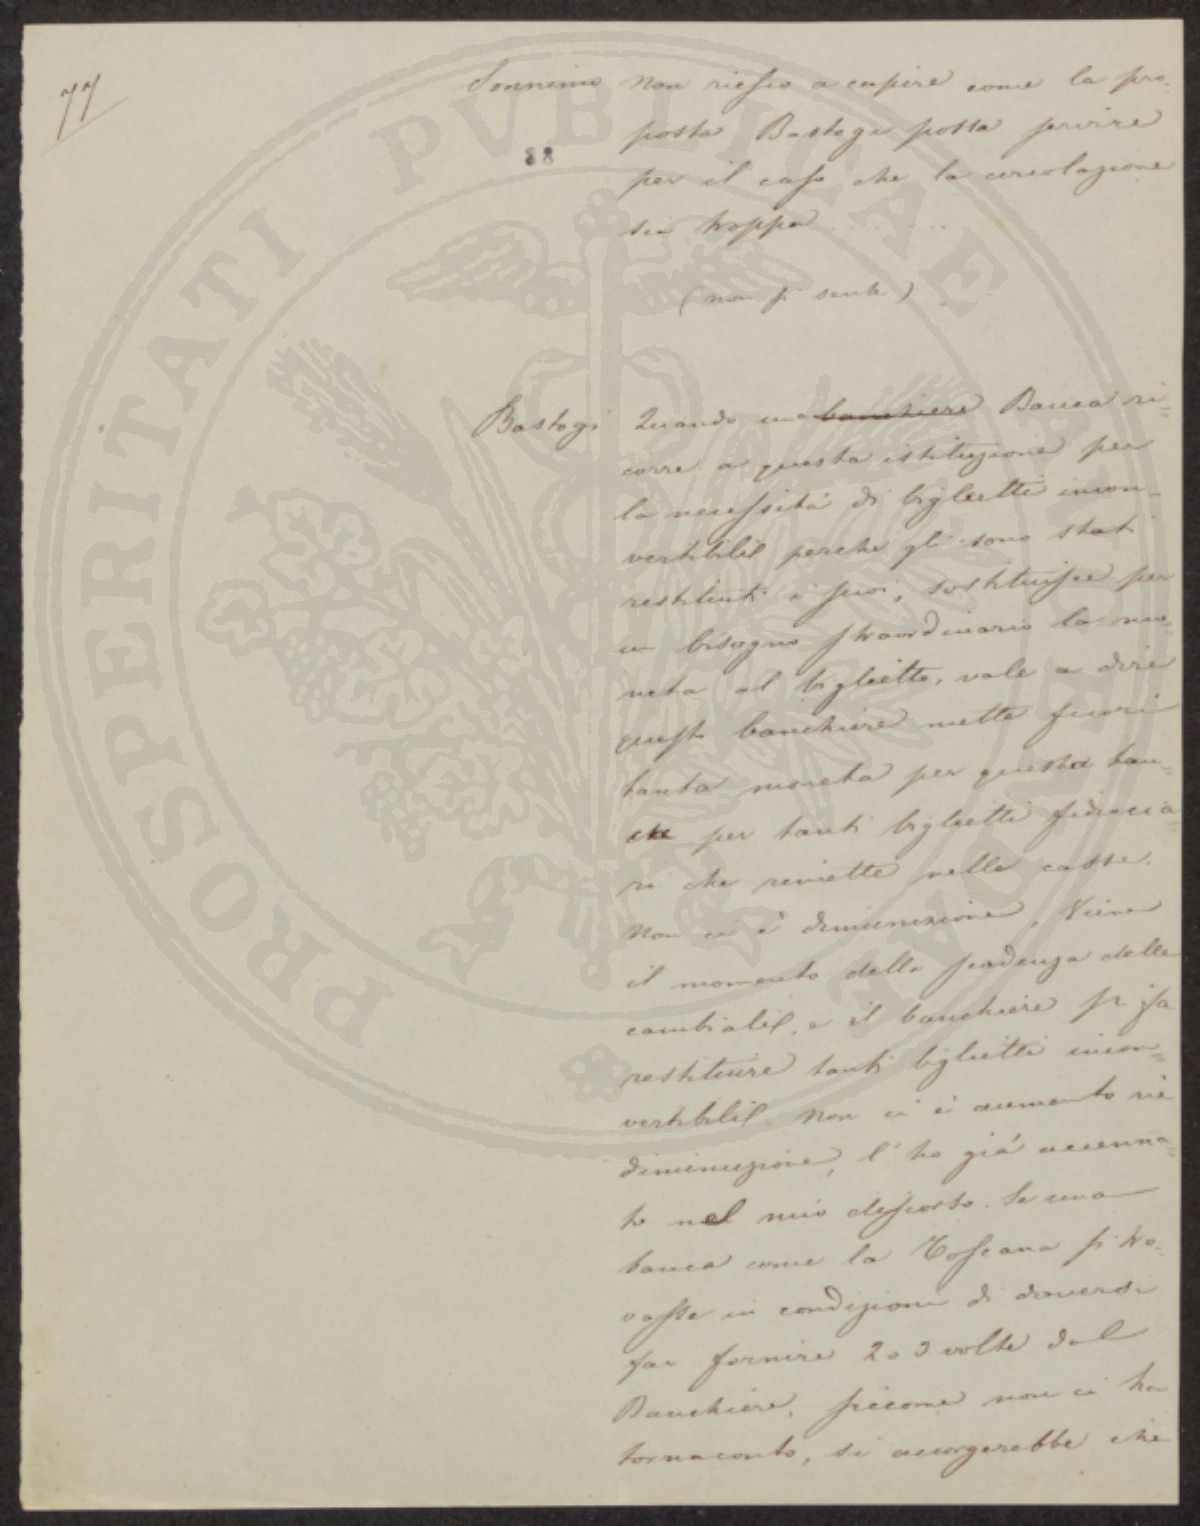 77
88
Sonnino Non riesco a capire come la pro-
posta Bastogi possa servire
per il caso che la circolazione
sia troppa ........
(non si sente)
Bastogi Quando una banchiere Banca ri=
corre a questa istituzione per
la necessità di biglietti incon-
vertibili perche gli sono stati
restituiti i suoi, sostituisce per
un bisogno straordinario la mo=
neta al biglietto, vale a dire
questo banchiere mette fuori
tanta moneta per questa ban=
ca per tanti biglietti fiducia=
ri che rimette nelle casse.
Non ci è diminuzione, Viene
il momento della scadenza delle
cambiali, e il banchiere si fa
restituire tanti biglietti incon=
vertibili. Non ci è aumento nè
diminuzione, l'ho già accenna=
to nel mio discorso. Se una
banca come la Toscana si tro-
vasse in condizioni di doversi
far fornire 2 o 3 volte dal
Banchiere, siccome non ci ha
tornaconto, si accorgerebbe che
PROSPERITATI PVBLICAE